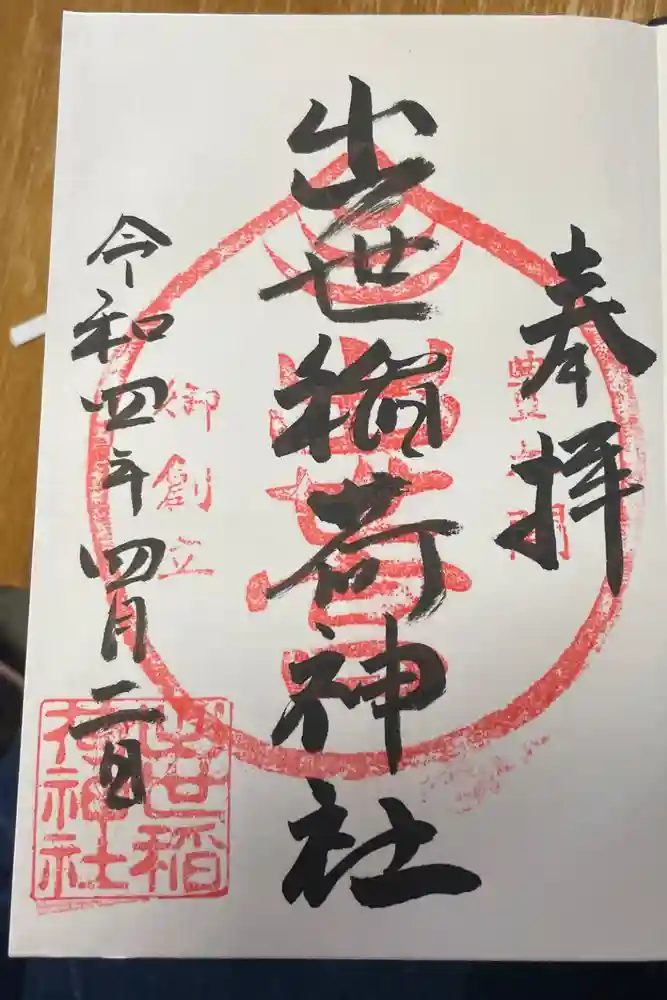 奉拝
出世稲荷神社
令和四年四月二日
御創立
出世稲
荷神社